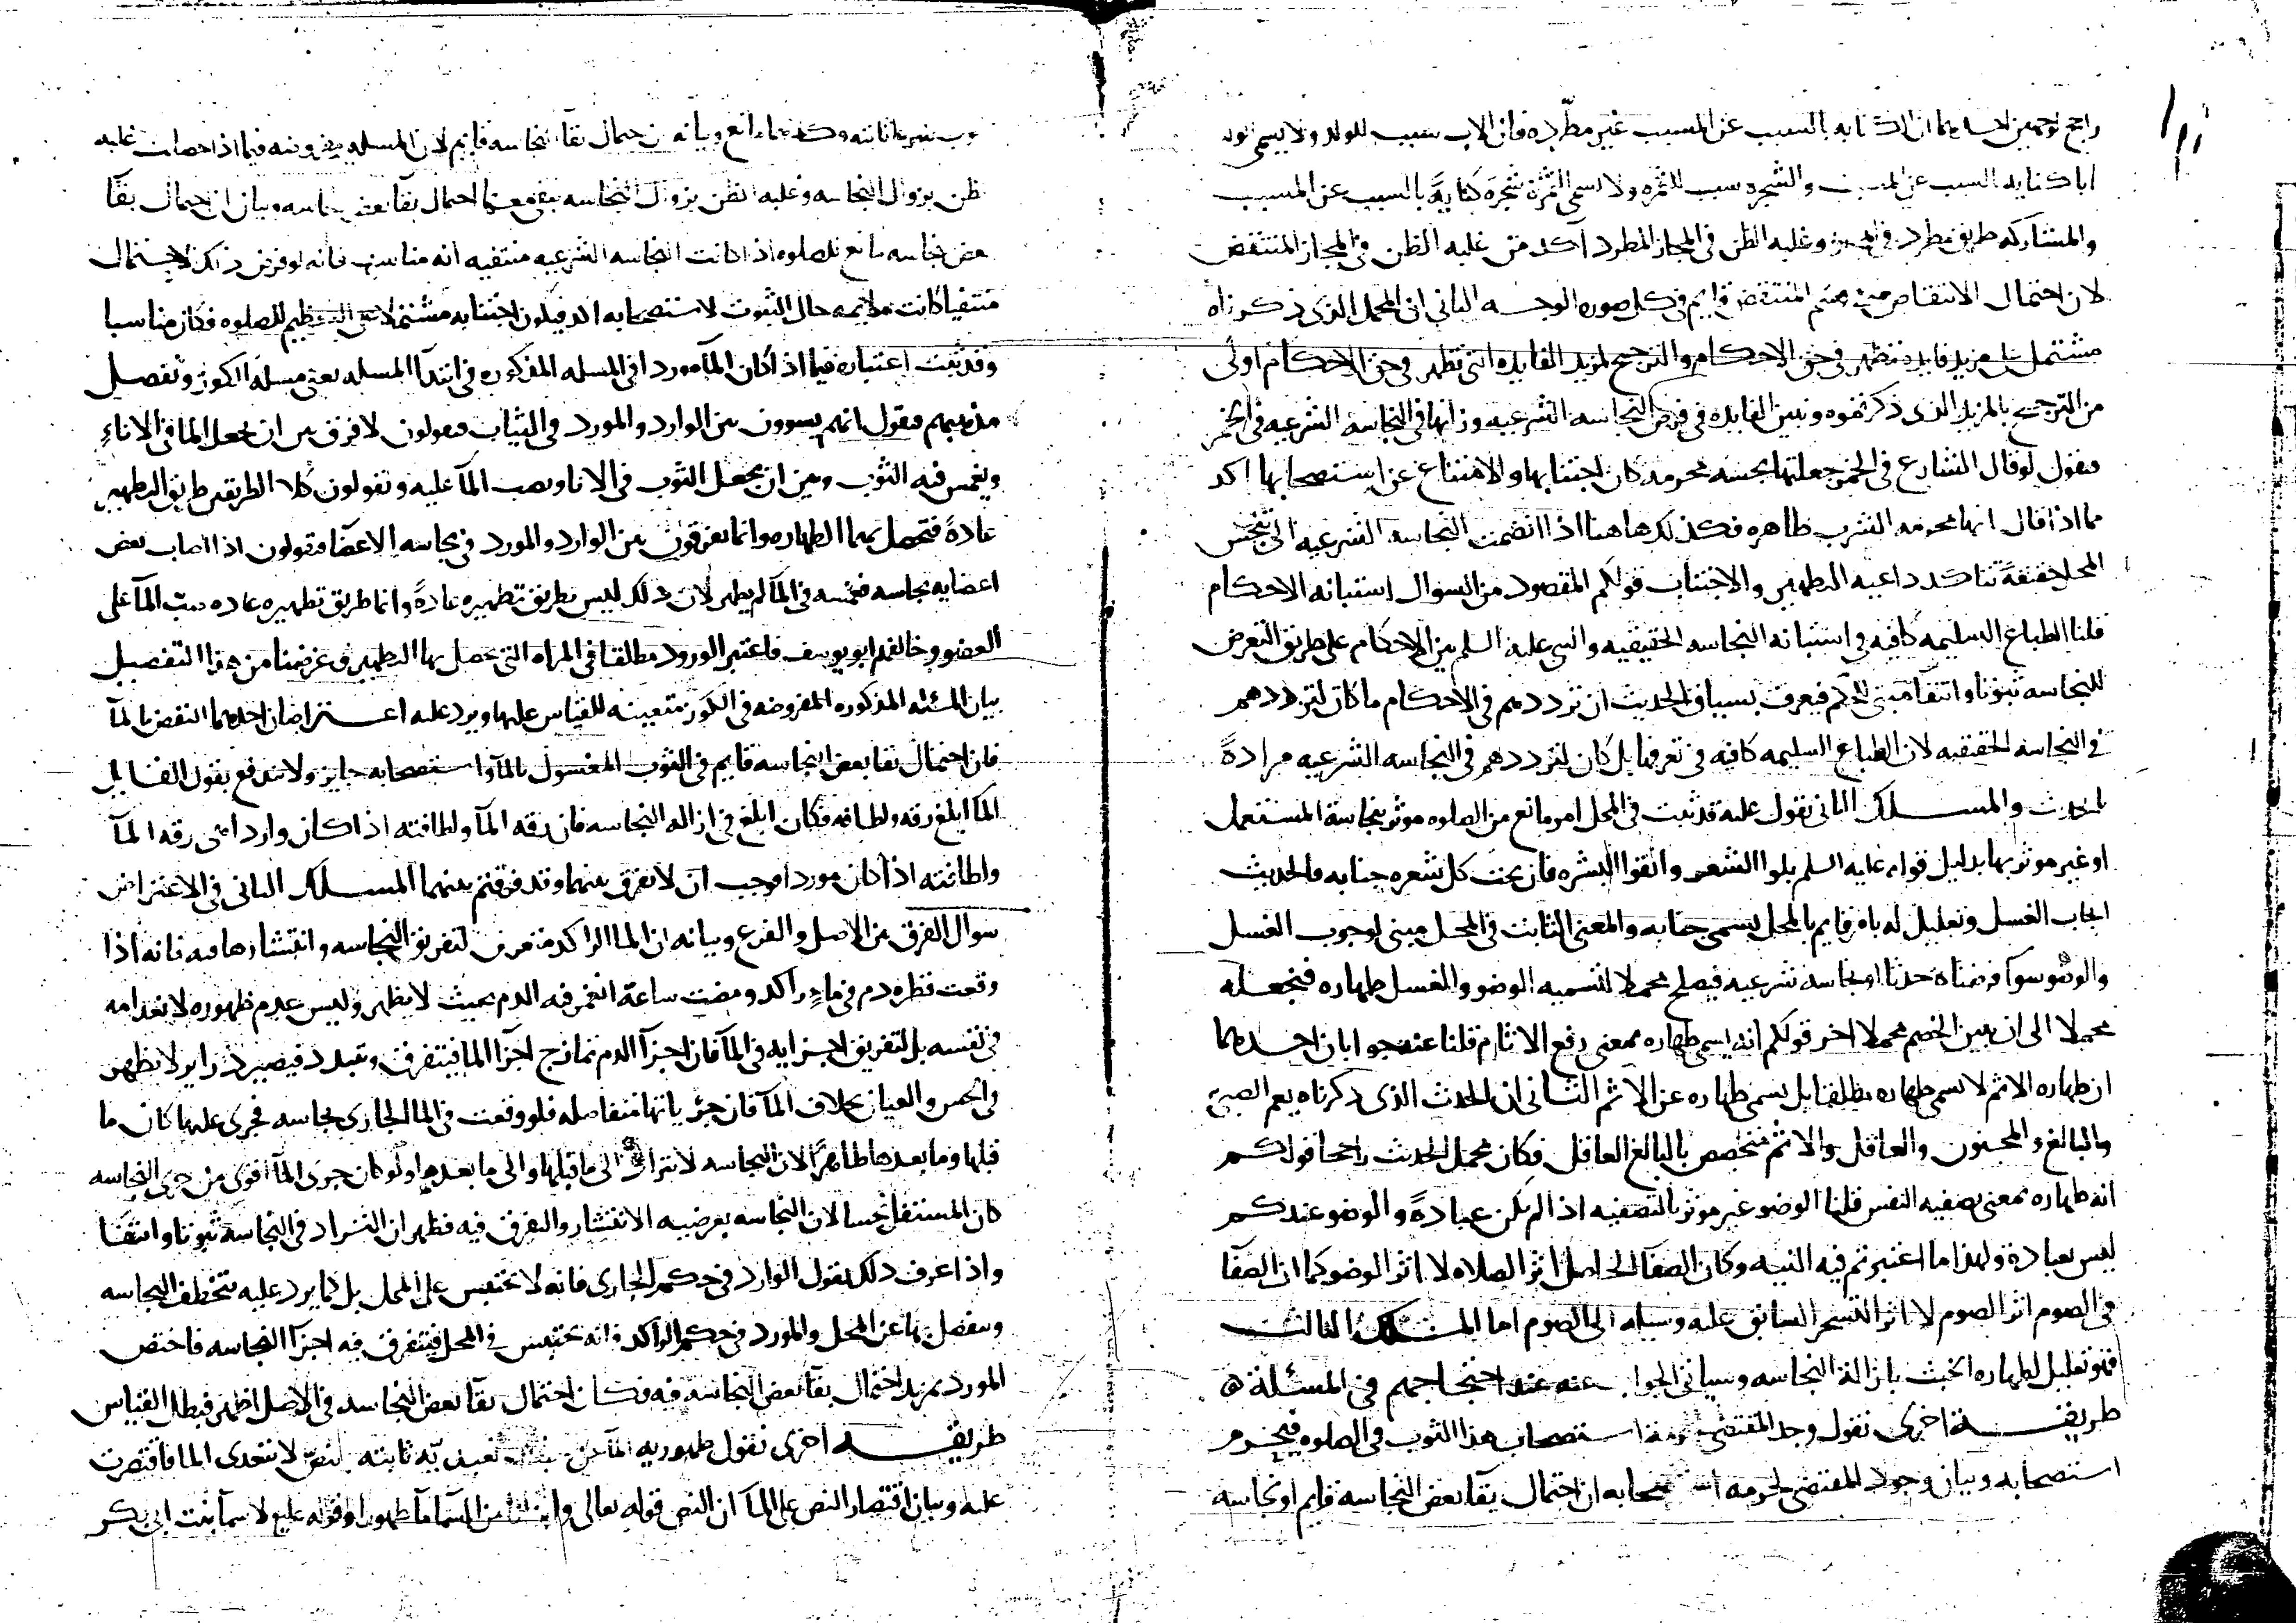 راجح لوجهين احدهما ان الكنايه بالسبب عن المسبب غير مطرده فان الاب سبب للولد ولا يسمى الولد
ابا كنايه بالسبب عن المسبب والشجره سبب للثمره ولا تسمى الثمرة شجرة كناية بالسبب عن المسبب
والمشاركه طريق مطرد في وغلبه الظن في المجاز المطرد آكد من غلبه الظن في المجاز المنتقض
لان احتمال الانتقاض المنتقض قايم في كل صوره الوجه الثاني ان المحمل الذي ذكرناه
مشتمل على مزيد فايده تظهر في حق الاحكام والترجيح لمزيد الفايده التي تظهر في حق الاحكام اولى
من الترجيح بالمزيد الذي ذكرتموه ونبين الفايده في فرض النجاسه الشرعيه وزانها في النجاسه الشرعيه في الخمر
فنقول لو قال الشارع في الخمر جعلتها نجسه محرمه كان اجتنابها والامتناع عن استصحابها اكد
مما اذا قال انها محرمه الشرب طاهره فكذلك هاهنا اذا انضمت النجاسه الشرعيه الى تنجس
المحل حقيقة تتاكد داعيه التطهير والاجتناب قولكم المقصود من السوال استبانه الاحكام
قلنا الطباع السليمه كافيه في استبانه النجاسه الحقيقيه والنبي عليه السلم بين الاحكام على طريق التعرض
للنجاسه ثبوتا وانتفآ مبنى للحكم فيعرف بسياق الحديث ان ترددهم في الاحكام ما كان لترددهم
في النجاسه الحقيقيه لان الطباع السليمه كافيه في تعرفها بل كان لترددهم في النجاسه الشرعيه مرادة
بالحديث والمسلك الثاني نقول عليه قد ثبت في المحل امر مانع من الصلوه موثر بنجاسة المستعمل
او غير موثر بها بدليل قوله عليه السلم بلوا الشعر وانقوا البشره فان تحت كل شعره جنابه فالحديث
ايجاب الغسل وتعليل له بامر قايم بالمحل يسمى جنابه والمعنى الثابت في المحل مبنى لوجوب الغسل
والوضو سوآ فرضناه حدثا او نجاسه شرعيه فيصلح محملا لتسميه الوضو والغسل طهاره فنجعله
محملا الى ان يبين الخصم محملا اخر قولكم انه يسمى طهاره بمعنى رفع الاثام قلنا عنه جوابان احدهما
ان طهاره الاثم لا تسمى طهاره مطلقا بل تسمى طهاره عن الاثم الثاني ان الحدث الذي ذكرناه يعم الصبي
والبالغ والمجنون والعاقل والاثم مختص بالبالغ العاقل فكان محمل الحدث راجحا قولكم
انه طهاره بمعنى تصفيه النفس قلنا الوضو غير موثر بالتصفيه اذا لم يكن عبادة والوضو عندكم
ليس بعبادة ولهذا ما اعتبرتم فيه النيه وكان الصفآ الحاصل اثر الصلاه لا اثر الوضو كما ان الصفآ
في الصوم اثر الصوم لا اثر التسحر السابق عليه وسيله الى الصوم اما المسلك الثالث
فهو تعليل لطهاره الخبث بازالة النجاسه وسياتي الجواب عنه عند احتجاجهم في المسئلة
طريقة اخرى نقول وجد المقتضى لحرمة استصحاب هذا الثوب في الصلوه فيحرم
استصحابه وبيان وجود المقتضى لحرمه استصحابه ان احتمال بقآ بعض النجاسة قايم او نجاسه
احتمال بقآ النجاسه قايم لان المسله مفروضه فيما اذا حصلت غلبه
ظن بزوال النجاسه وغلبه الظن بزوال النجاسه يبقى معها احتمال بقآ بعض النجاسه وبيان ان احتمال بقآ
بعض نجاسه مانع للصلوه اذا كانت النجاسه الشرعيه منتفيه انه مناسب فانه لو فرض ذلك الاحتمال
منتفيا كانت ملايمه حال الثبوت لاستصحابه اكد فيكون اجتنابه مشتملا على التعظيم للصلوه فكان مناسبا
وقد ثبت اعتباره فيما اذا كان المآ مورد افي المسله المذكوره في ابتدآ المسله يعني مسله الكوز وتفصيل
مذهبهم فنقول انهم يسوون بين الوارد والمورد في الثياب فيقولون لا فرق بين ان يجعل المآ في الاناءِ
ويغمس فيه الثوب وبين ان يجعل الثوب في الانا ويصب المآ عليه ويقولون كلا الطريقين طريق التطهير
عادة فتحصل بهما الطهاره وانما يفرقون بين الوارد والمورد في نجاسه الاعضآ فيقولون اذا اصاب بعض
اعضايه نجاسه فغمسه في المآ لم يطهر لان ذلك ليس بطريق تطهيره عادة وانما طريق تطهيره عاده صب المآ على
العضو وخالفهم ابو يوسف فاعتبر الورود مطلقا في المراه التي يحصل بها التطهير وغرضنا من هذا التفصيل
بيان المسئله المذكوره المفروضه في الكوز متعينه للقياس عليها ويرد عليه اعتراضان احدهما النقض بالمآ
فان احتمال بقا بعض النجاسه قايم في الثوب المغسول بالمآ واستصحابه جايز ولا يندفع بقول القايل
المآ ابلغ رقه ولطافه فكان ابلغ في ازاله النجاسه فان رقه المآ ولطافته اذا كان واردا هي رقه المآ
ولطافته اذا كان موردا فوجب ان لا يفرق بينهما وقد فرقتم بينهما المسلك الثاني في الاعتراض
سوال الفرق بين الاصل والفرع وبيانه ان المآ الراكد معرض لتفريق النجاسه وانتشارها فيه فانه اذا
وقعت قطره دم في ماءٍ راكد ومضت ساعة انغمر فيه الدم بحيث لا يظهر وليس عدم ظهوره لانعدامه
في نفسه بل لتفريق اجزايه في المآ فان اجزآ الدم تمازج اجزآ المآ فيتفرق ويتبدد فيصير ذراير لا تظهر
في الحس والعيان بخلاف المآ فان جريانها متفاصله فلو وقعت في المآ الجاري نجاسه فجرى عليها كان ما
قبلها وما بعدها طاهرا لان النجاسه لا تتراد الى ما قبلها والى ما بعدها ولو كان جرى المآ اقوى من جرى النجاسه
كان المستفل نجسا لان النجاسه بعرضيه الانتشار والتفرق فيه فظهر ان التراد في النجاسة ثبوتا وانتفا
واذا عرف ذلك نقول الوارد في حكم الجاري فانه لا يحتبس على المحل بل كما يرد عليه يتخطف النجاسه
وينفصل بها عن المحل والمورد في حكم الراكد فانه يحتبس في المحل فيتفرق فيه اجزآ النجاسه فاختص
المورد بمزيد احتمال بقآ بعض النجاسه فيه فكان احتمال بقآ بعض النجاسه في الاصل اظهر فبطل القياس
طريقه اخرى نقول طهوريه المآ تعبديّه ثابته بالنص لا تتعدى المآ فاقتصرت
عليه وبيان اقتصار النص على المآ ان النص قوله تعالى وانزلنا من السمآ مآ طهورا وقوله عليه لاسمآ بنت ابي بكر